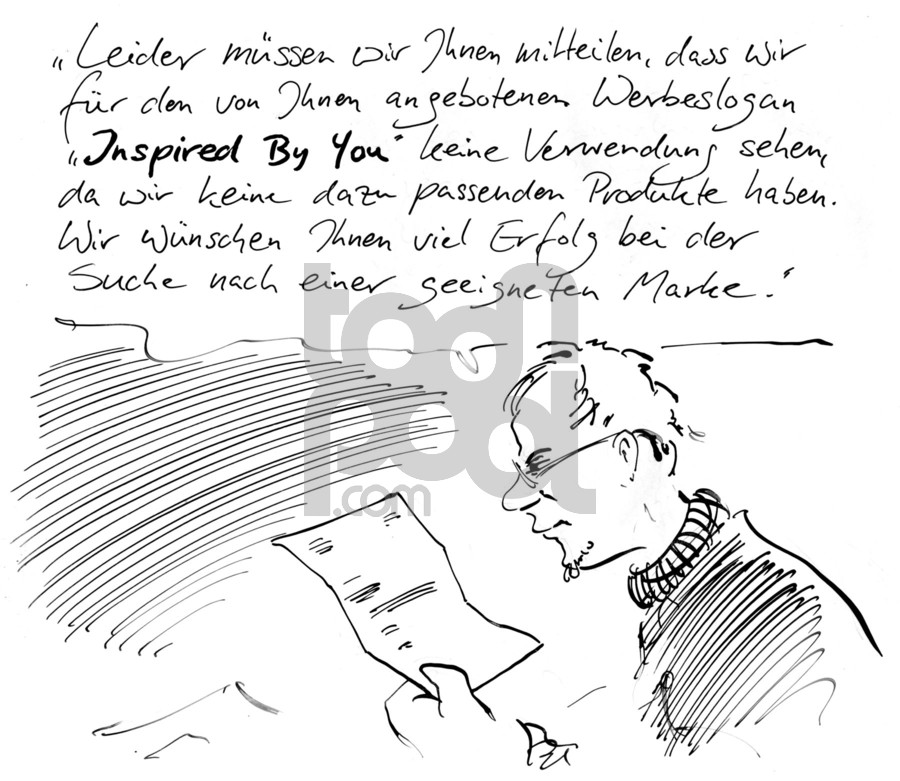 „Leider müssen wir Ihnen mitteilen, dass wir
für den von Ihnen angebotenen Werbeslogan
„Inspired By You“ keine Verwendung sehen,
da wir keine dazu passenden Produkte haben.
Wir wünschen Ihnen viel Erfolg bei der
Suche nach einer geeigneten Marke.“
toonpool
.com